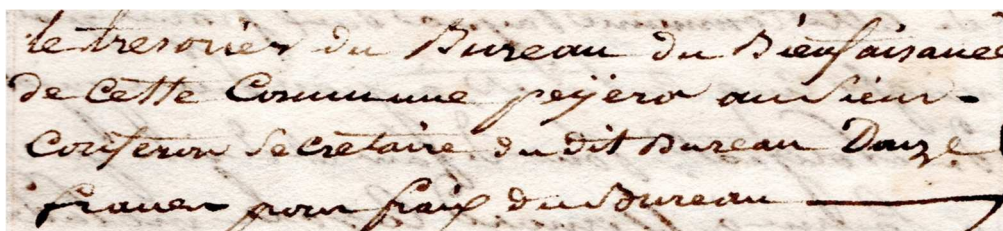 le tresorier du Bureau du Bienfaisance
de cette Commune peÿera au Sieur
Secretaire du dit Bureau Douze
francs pour fraix du Bureau